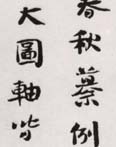 春秋纂例
大圖軸皆